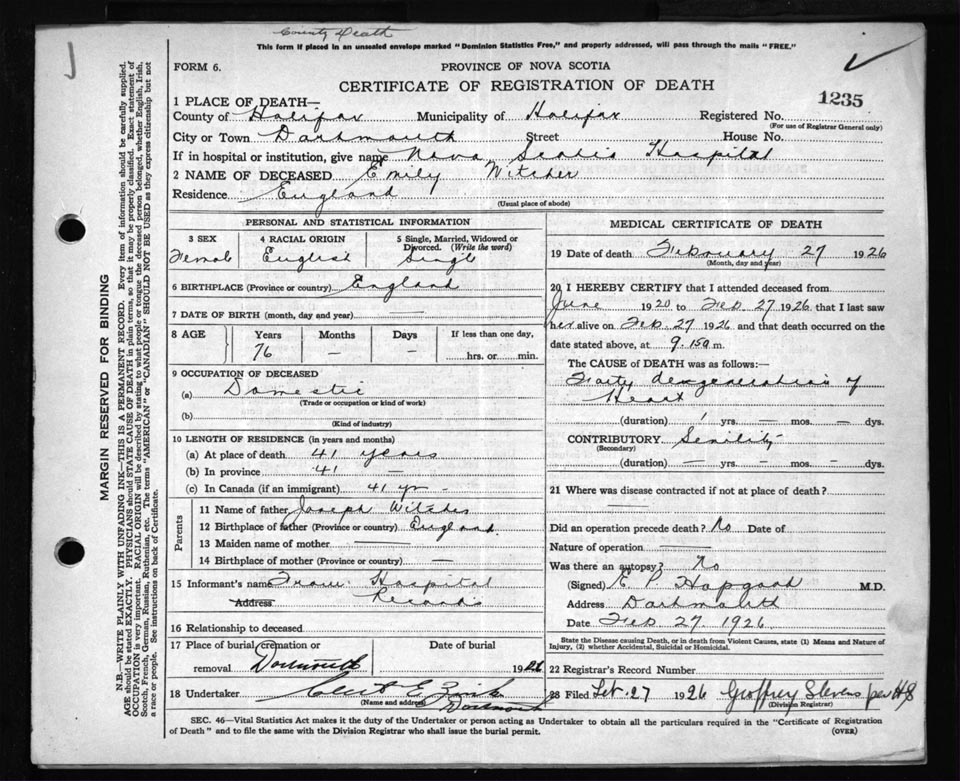 County Death
This form if placed in an unsealed envelope marked "Dominion Statistics Free," and properly addressed, will pass through the mails "FREE."
FORM 6.
PROVINCE OF NOVA SCOTIA
CERTIFICATE OF REGISTRATION OF DEATH
1235
1 PLACE OF DEATH—
County of Halifax Municipality of Halifax Registered No.
(For use of Registrar General only)
City or Town Dartmouth Street House No.
If in hospital or institution, give name Nova Scotia Hospital
2 NAME OF DECEASED Emily Witcher
Residence England
(Usual place of abode)
PERSONAL AND STATISTICAL INFORMATION
3 SEX 4 RACIAL ORIGIN 5 Single, Married, Widowed or Divorced. (Write the word)
Female English Single
6 BIRTHPLACE (Province or country) England
7 DATE OF BIRTH (month, day and year) —
8 AGE Years Months Days If less than one day,
76 — — hrs. or min.
9 OCCUPATION OF DECEASED
(a) Domestic
(Trade or occupation or kind of work)
(b)
(Kind of industry)
10 LENGTH OF RESIDENCE (in years and months)
(a) At place of death 41 years
(b) In province 41 —
(c) In Canada (if an immigrant) 41 yr -
Parents
11 Name of father Joseph Witcher
12 Birthplace of father (Province or country) England
13 Maiden name of mother —
14 Birthplace of mother (Province or country) —
15 Informant's name From Hospital
Address Records
16 Relationship to deceased
17 Place of burial, cremation or removal Dartmouth Date of burial 1926
18 Undertaker
(Name and address) Dartmouth
MEDICAL CERTIFICATE OF DEATH
19 Date of death February 27 1926
(Month, day and year)
20 I HEREBY CERTIFY that I attended deceased from
June 1920 to Feb 27 1926 that I last saw
her alive on Feb 27 1926 and that death occurred on the
date stated above, at 9.15 a m.
The CAUSE of DEATH was as follows:
Fatty degeneration of
Heart
(duration) 1 yrs. — mos. — dys.
CONTRIBUTORY Senility
(Secondary)
(duration) — yrs. — mos. — dys.
21 Where was disease contracted if not at place of death?
—
Did an operation precede death? No Date of
Nature of operation —
Was there an autopsy? No
(Signed) E. P. Hopgood M.D.
Address Dartmouth
Date Feb 27. 1926.
State the Disease causing Death, or in death from Violent Causes, state (1) Means and Nature of Injury, (2) whether Accidental, Suicidal or Homicidal.
22 Registrar's Record Number
23 Filed Feb. 27 1926 Geoffrey Stevens per HS
(Division Registrar)
SEC. 46—Vital Statistics Act makes it the duty of the Undertaker or person acting as Undertaker to obtain all the particulars required in the "Certificate of Registration
of Death" and to file the same with the Division Registrar who shall issue the burial permit. (OVER)
MARGIN RESERVED FOR BINDING
N.B.—WRITE PLAINLY WITH UNFADING INK—THIS IS A PERMANENT RECORD. Every item of information should be carefully supplied.
AGE should be stated EXACTLY. PHYSICIANS should STATE CAUSE OF DEATH in plain terms, so that it may be properly classified. Exact statement of
OCCUPATION is very important. RACIAL ORIGIN will be described by stating to what people or tongue the deceased person belonged, whether English, Irish,
Scotch, French, German, Russian, Ruthenian, etc. The terms "AMERICAN" or "CANADIAN" SHOULD NOT BE USED as they express citizenship but not
a race or people. See instructions on back of Certificate.